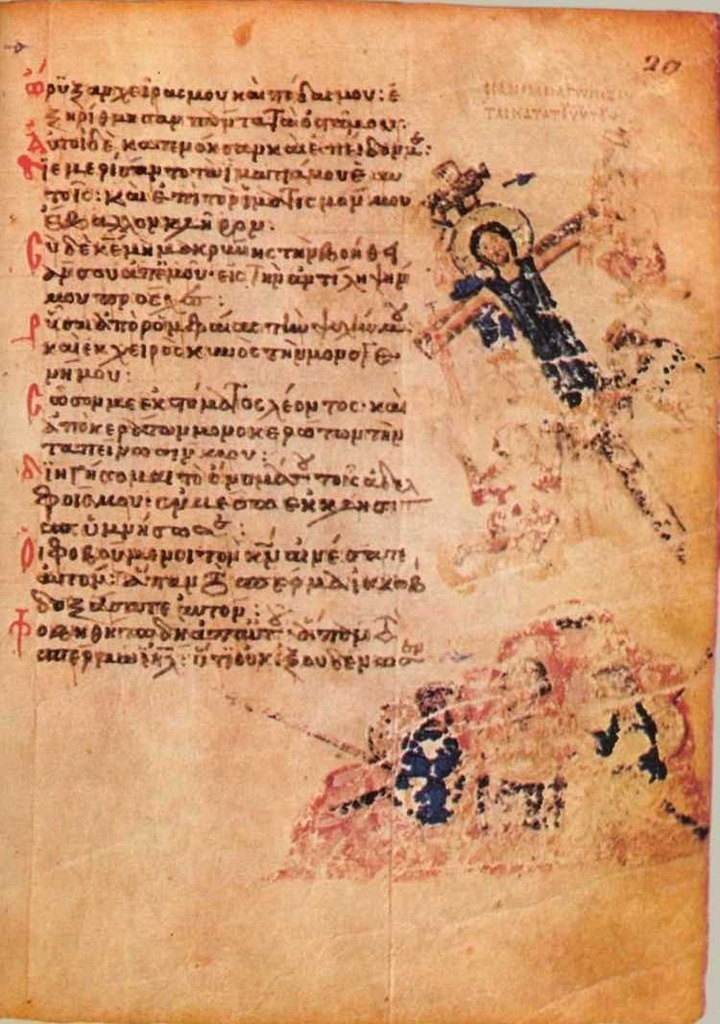 ὤρυξαν χεῖρας μου καὶ πόδας μου: ἐ
ξηρίθμησαν πάντα τὰ ὀστᾶ μου:
Αὐτοὶ δὲ κατενόησαν καὶ ἐπεῖδόν με:
Διεμερίσαντο τὰ ἱμάτιά μου ἑαυ
τοῖς: καὶ ἐπὶ τὸν ἱματισμόν μου
ἔβαλλον κλῆρον:
Σὺ δὲ κε μὴ μακρύνης τὴν βοήθει
άν σου ἀπ' ἐμοῦ· εἰς τὴν ἀντίληψίν
μου πρόσχες:
Ῥῦσαι ἀπὸ ῥομφαίας τὴν ψυχήν μου:
καὶ ἐκ χειρὸς κυνὸς τὴν μονογε
νῆ μου:
Σῶσόν με ἐκ στόματος λέοντος· καὶ
ἀπὸ κεράτων μονοκερώτων τὴν
ταπείνωσίν μου:
Διηγήσομαι τὸ ὄνομά σου τοῖς ἀδελ
φοῖς μου· ἐν μέσω ἐκκλησί
ας ὑμνήσω σε:
Οἱ φοβούμενοι τὸν κν αἰνέσατε
αὐτόν: ἅπαν τὸ σπέρμα ἰακὼβ
δοξάσατε αὐτόν:
Φοβηθήτω δὴ ἀπ' αὐτοῦ ἅπαν τὸ
σπέρμα ιηλ: ὅτι οὐκ ἐξουδένωσεν
20